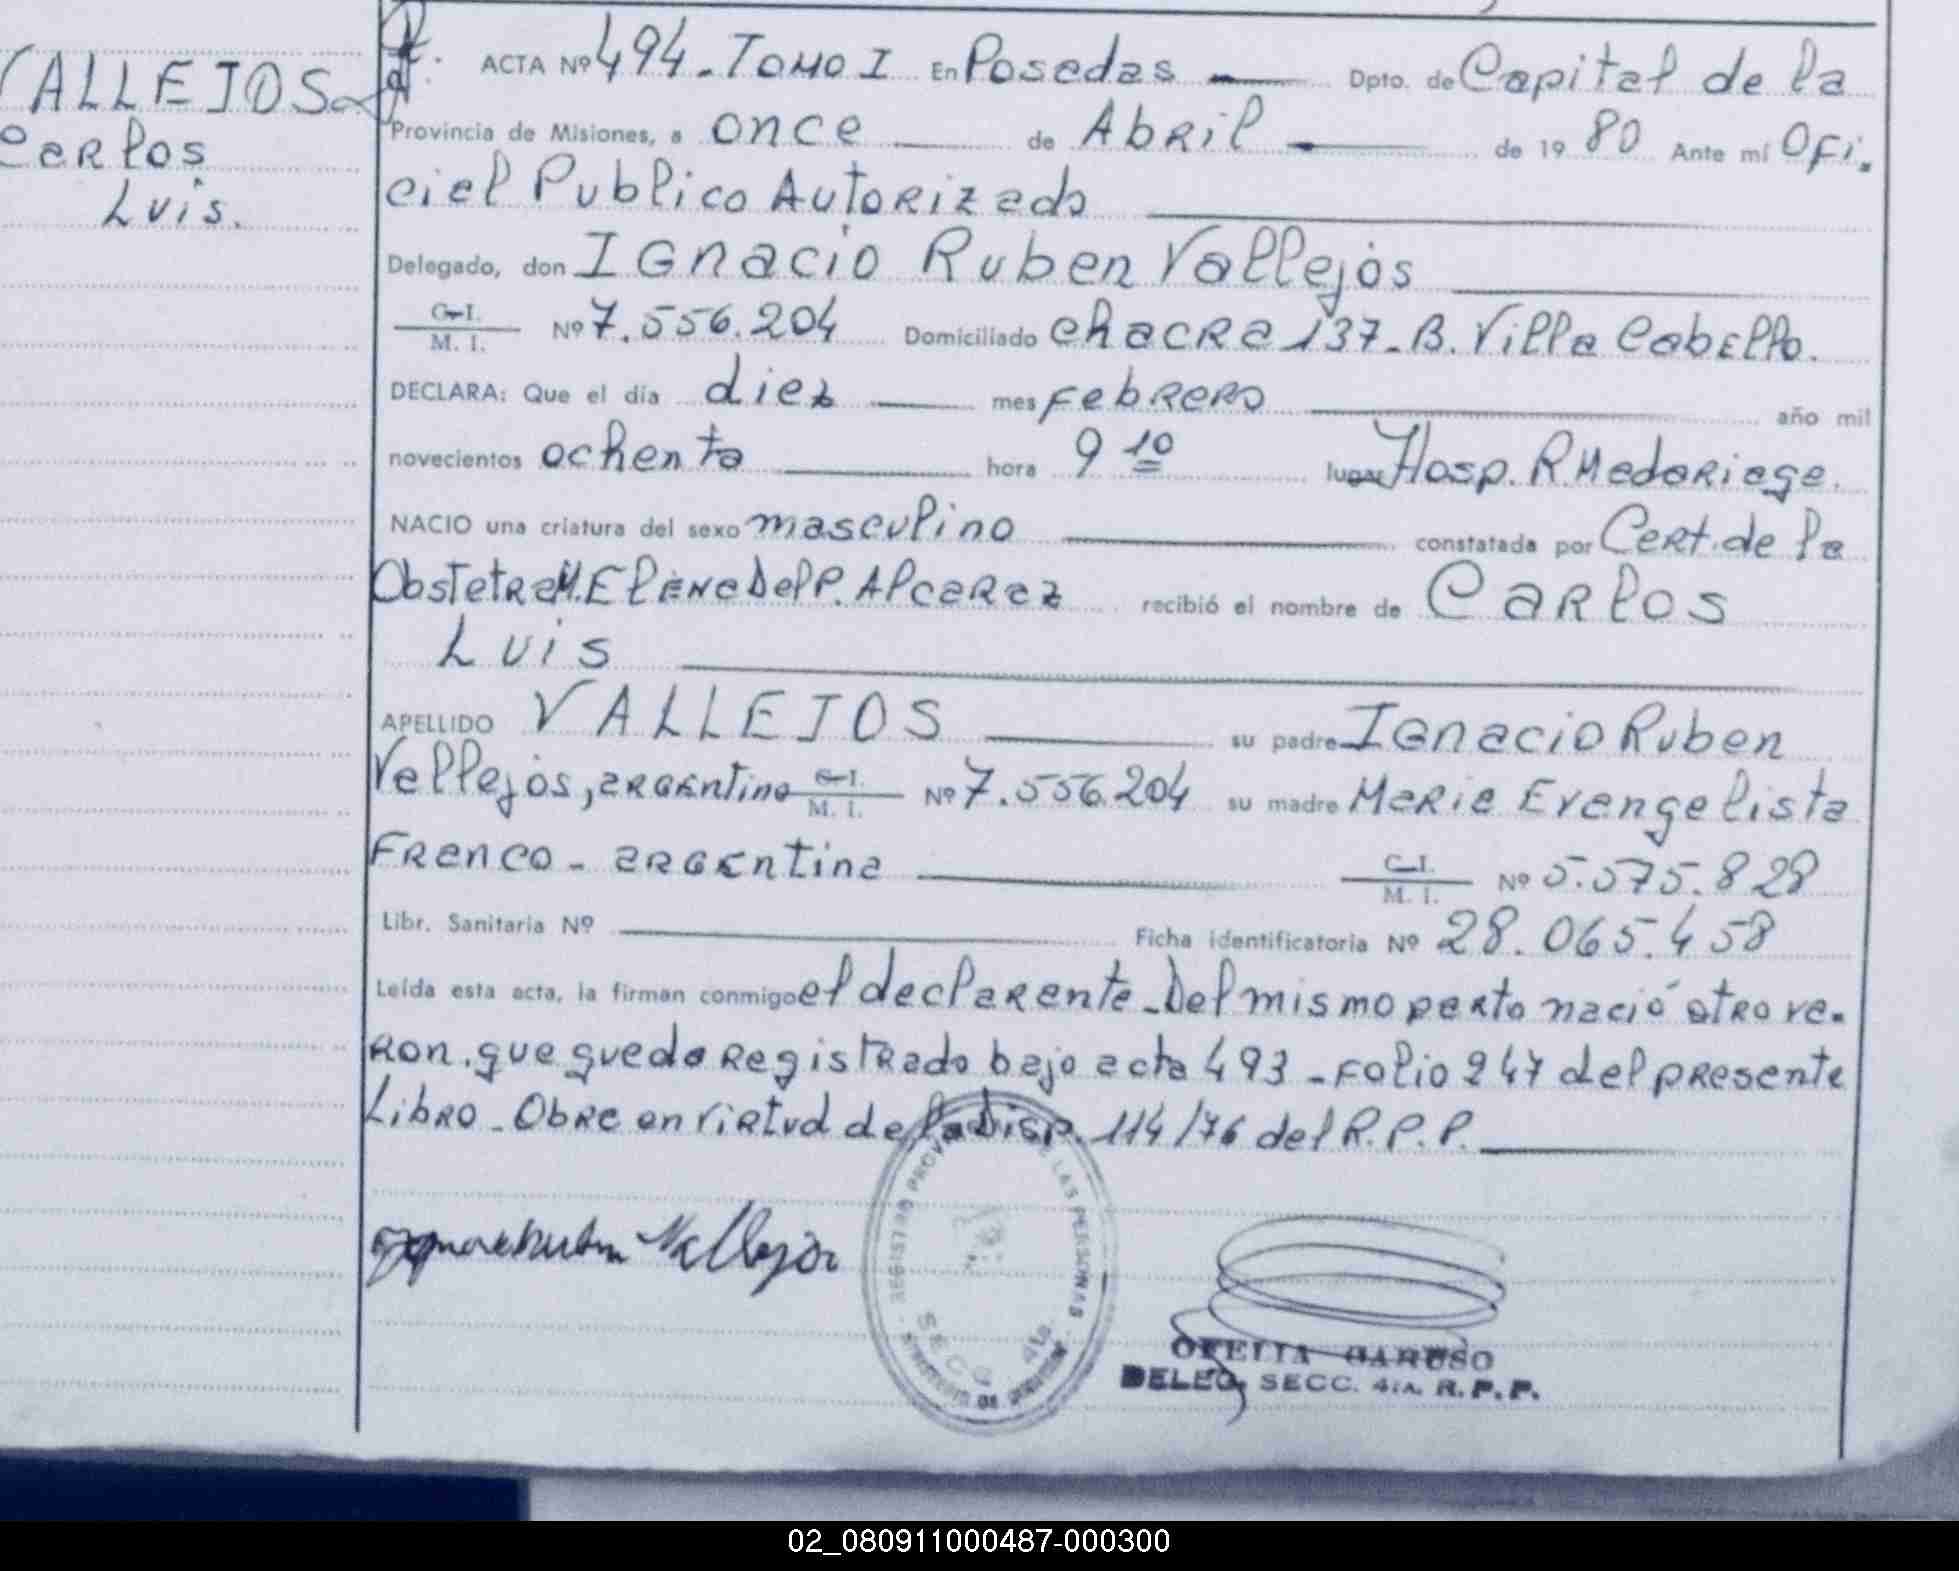 VALLEJOS
Carlos
Luis.
ACTA Nº 494 - Tomo I En Posadas Dpto. de Capital de la
Provincia de Misiones, a once de Abril de 1980 Ante mí Ofi-
cial Publico Autorizado
Delegado, don Ignacio Ruben Vallejos
C. I.
M. I. Nº 7.556.204 Domiciliado chacra 137 - B. Villa Cabello.
DECLARA: Que el día diez mes febrero año mil
novecientos ochenta hora 9 10 lugar Hosp. R Madariaga.
NACIO una criatura del sexo masculino constatada por Cert. de la
Obstetra M. Elena Del P. Alcaraz recibió el nombre de Carlos
Luis
APELLIDO VALLEJOS su padre Ignacio Ruben
Vallejos, argentino C. I.
M. I. Nº 7.556.204 su madre Maria Evangelista
Franco - argentina C. I.
M. I. Nº 5.575.828
Libr. Sanitaria Nº Ficha identificatoria Nº 28.065.458
Leída esta acta, la firman conmigo el declarante - Del mismo parto nació otro va-
ron. que queda registrado bajo acta 493 - Folio 247 del presente
Libro - Obre en virtud de la Disp. 114/76 del R.P.P.
Vallejos
REGISTRO PROV LAS PERSONAS
SECC 4ta.
OFELIA CARUSO
DELEG. SECC. 4ta. R.P.P.
02_080911000487-000300